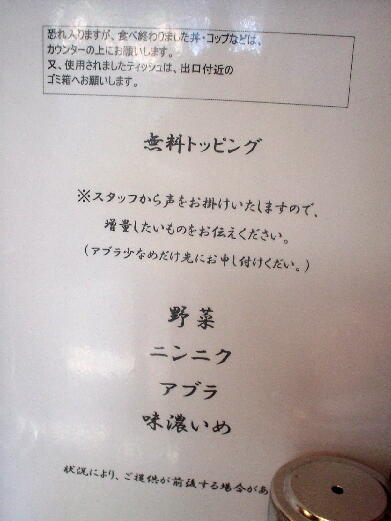 恐れ入りますが、食べ終わりました丼・コップなどは、
カウンターの上にお願いします。
又、使用されましたティッシュは、出口付近の
ゴミ箱へお願いします。
無料トッピング
※スタッフから声をお掛けいたしますので、
増量したいものをお伝えください。
(アブラ少なめだけ先にお申し付けくだい。)
野菜
ニンニク
アブラ
味濃いめ
状況により、ご提供が前後する場合があ